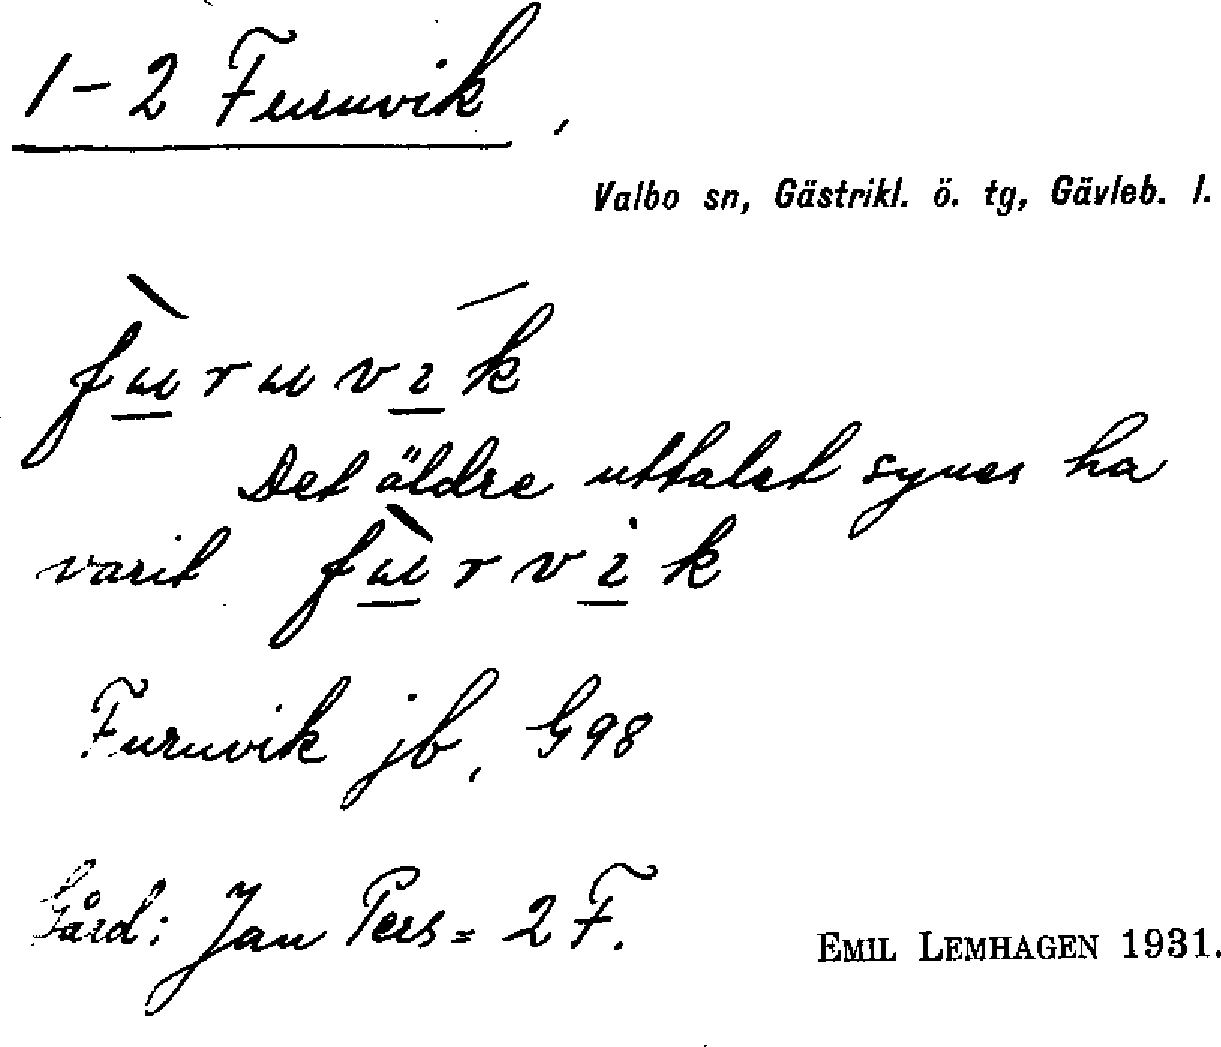 1-2 Furuvik,
Valbo sn, Gästrikl. ö. tg, Gävleb. l.
fùruvík
Det äldre uttalet synes ha
varit fùrvik
Furuvik jb, G98
Gård: Jan Pers = 2 F.
EMIL LEMHAGEN 1931.